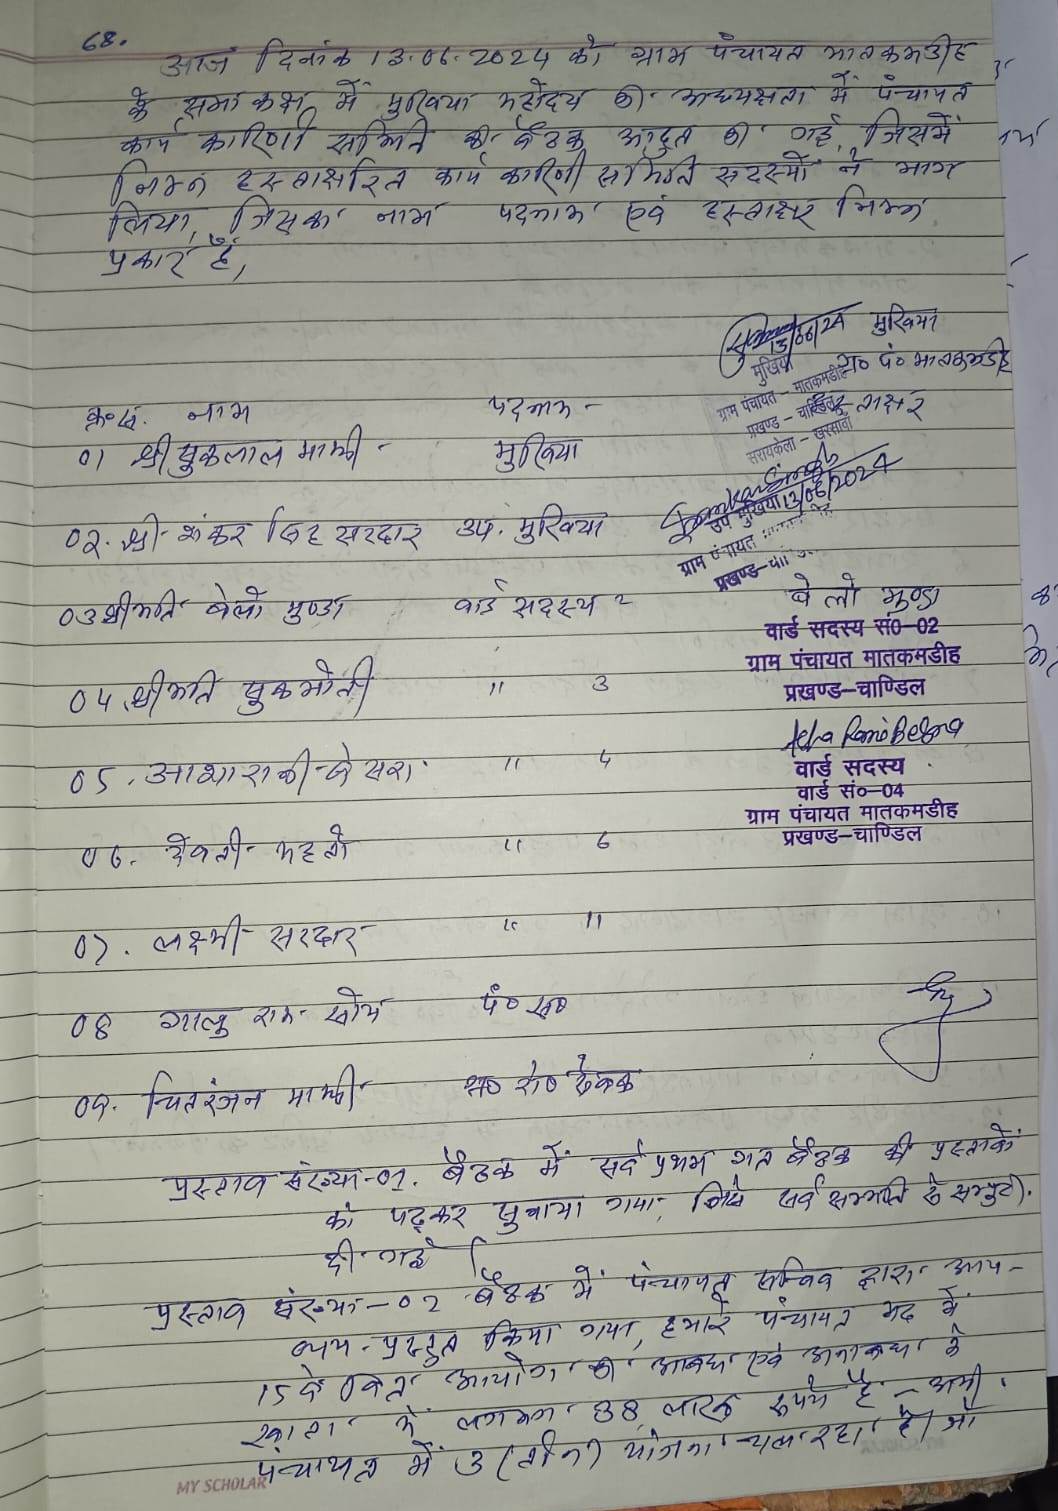 68.
आज दिनांक 13.06.2024 को ग्राम पंचायत मातकमडीह
के सभा कक्ष में मुखिया महोदय की अध्यक्षता में पंचायत
कार्य कारिणी समिति की बैठक आहुत की गई, जिसमें
निम्न हस्ताक्षरित कार्य कारिणी समिति सदस्यों ने भाग
लिया, जिसका नाम पदनाम एवं हस्ताक्षर निम्न
प्रकार है,
13/06/24 मुखिया
मुखिया ग्रा० पं० मातकमडीह
ग्राम पंचायत - मातकमडीह
प्रखण्ड - चाण्डिल
सरायकेला - खरसावाँ
क्र०सं. नाम पदनाम - हस्ताक्षर
01 श्री सुकलाल माझी - मुखिया
02. श्री शंकर सिंह सरदार उप. मुखिया
13/06/2024
उप मुखिया
ग्राम पंचायत
प्रखण्ड-
03 श्रीमति बेलो मुण्डा वार्ड सदस्य 2 बेलो मुण्डा
वार्ड सदस्य सं0-02
ग्राम पंचायत मातकमडीह
प्रखण्ड-चाण्डिल
04 श्रीमति सुकमोती " 3
05. आशा रानी बेसरा " 4 Asha Rani Besra
वार्ड सदस्य
वार्ड सं०-04
ग्राम पंचायत मातकमडीह
प्रखण्ड-चाण्डिल
06. रेवती महतो " 6
07. लक्ष्मी सरदार " 11
08 गालु राम सोय पं० स०
09. चितरंजन माझी ग्रा० रो० सेवक
प्रस्ताव संख्या-01. बैठक में सर्व प्रथम गत बैठक की प्रस्तावों
को पढ़कर सुनाया गया, जिसे सर्व सम्मति से सम्पुष्टि
दी गई।
प्रस्ताव संख्या-02 बैठक में पंचायत सचिव द्वारा आय-
व्यय प्रस्तुत किया गया, हमारे पंचायत मद में
15 वें वित्त आयोग की आबध एवं अनाबध के
खाता में लगभग 38 लाख रूपये है - अभी
पंचायत में 3 (तीन) योजना चल रहा है। जो
MY SCHOLAR